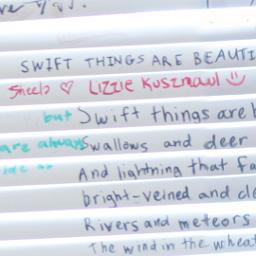 you.
SWIFT THINGS ARE BEAUTI
Sheels ♡ LIZZIE KUSZMAUL
but Swift things are b
are always Swallows and deer
And lightning that fa
bright-veined and cle
Rivers and meteors
The wind in the wheat